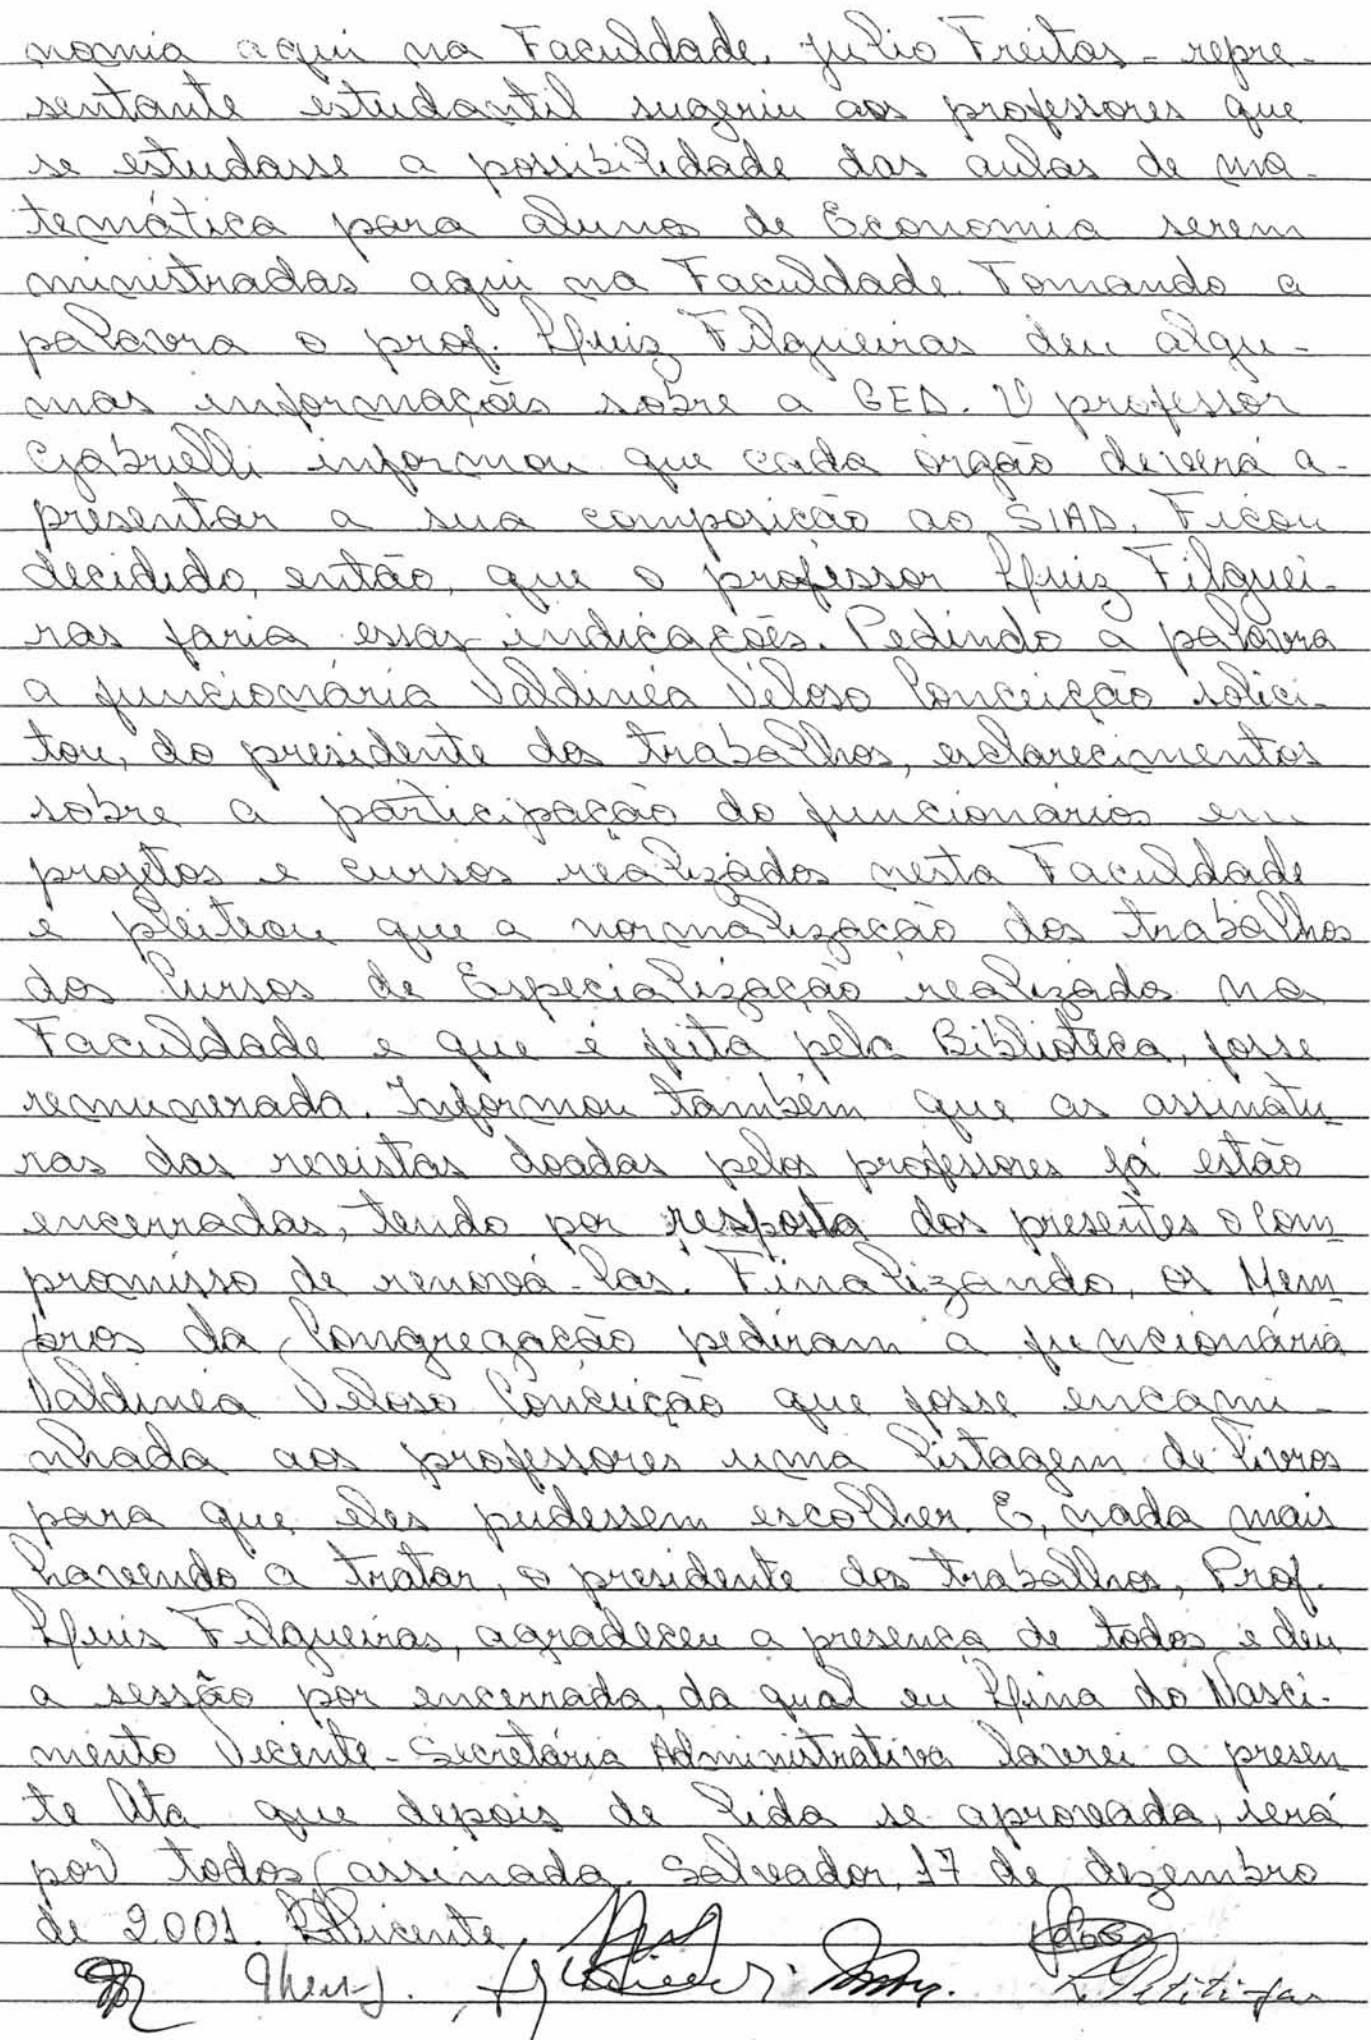 nomia aqui na Faculdade. Julio Freitas - repre-
sentante estudantil sugeriu aos professores que
se estudasse a possibilidade das aulas de ma-
temática para alunos de Economia serem
ministradas aqui na Faculdade. Tomando a
palavra o prof. Luiz Filgueiras deu algu-
mas informações sobre a GED. O professor
Gabrielli informou que cada órgão deverá a-
presentar a sua composição ao SIAD. Ficou
decidido, então, que o professor Luiz Filguei-
ras faria essas indicações. Pedindo a palavra
a funcionária Valdinéa Veloso Conceição solici-
tou, do presidente dos trabalhos, esclarecimentos
sobre a participação do funcionários em
projetos e cursos realizados nesta Faculdade
e pleiteou que a normalização dos trabalhos
dos Cursos de Especialização realizada na
Faculdade e que é feita pela Biblioteca, fosse
remunerada. Informou também que as assinatu-
ras das revistas doadas pelos professores já estão
encerradas, tendo por resposta dos presentes o com-
promisso de renová-las. Finalizando, os Mem-
bros da Congregação pediram a funcionária
Valdinéa Veloso Conceição que fosse encami-
nhada aos professores uma listagem de livros
para que eles pudessem escolher. E, nada mais
havendo a tratar, o presidente dos trabalhos, Prof.
Luis Filgueiras, agradeceu a presença de todos e deu
a sessão por encerrada, da qual eu Lina do Nasci-
mento Vicente - Secretária Administrativa lavrei a presen-
te Ata que depois de lida se aprovada, será
por todos assinada. Salvador, 17 de dezembro
de 2001. LVicente